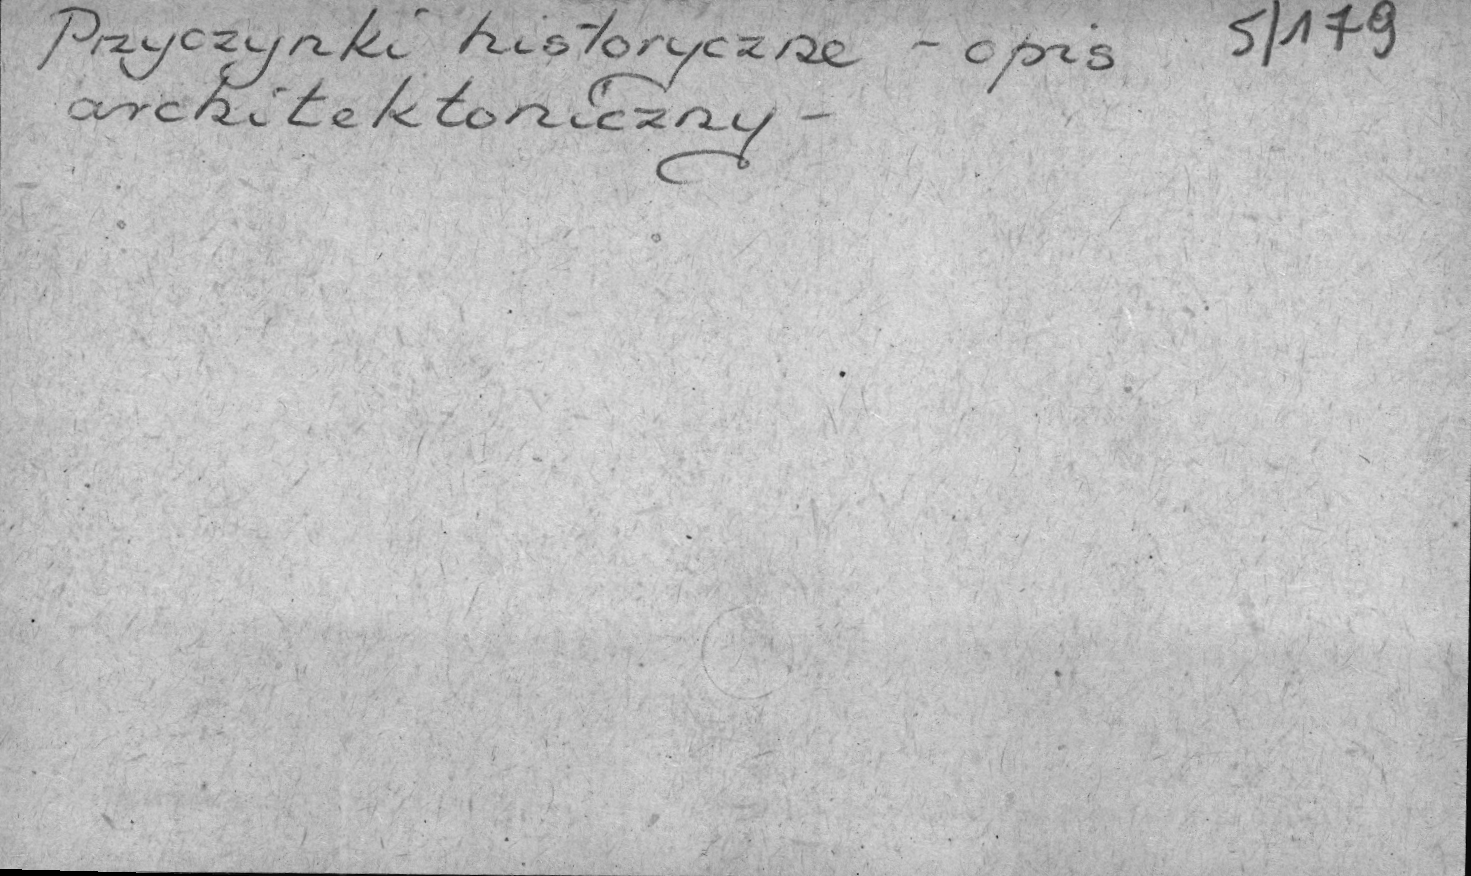 Przyczynki historyczne - opis 5/179
architektoniczny -